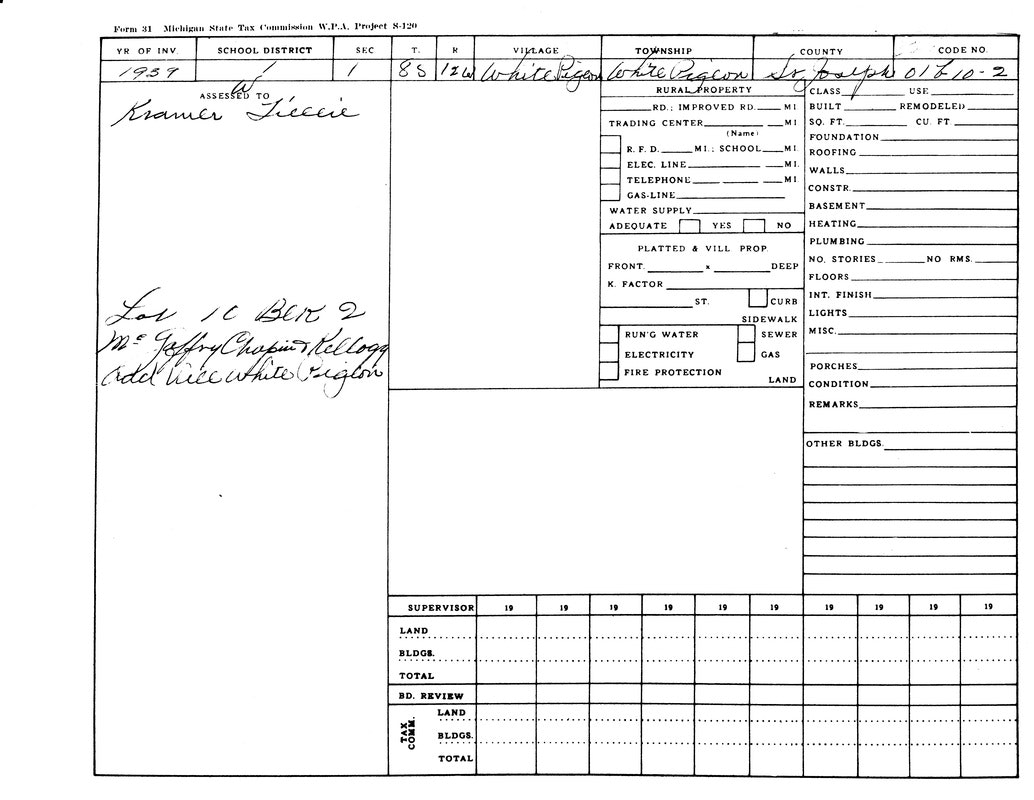 Form 31 Michigan State Tax Commission W.P.A. Project S-120
YR OF INV. SCHOOL DISTRICT SEC T. R VILLAGE TOWNSHIP COUNTY CODE NO.
1939 1 1 8S 12W White Pigeon White Pigeon St. Joseph 01 10-2
ASSESSED TO
Kramer Tillie
Lot 10 Blk 2
Mc Gaffry Chapin & Kellogg
add Vill White Pigeon
RURAL PROPERTY
RD.; IMPROVED RD. MI
TRADING CENTER MI
(Name)
R. F. D. MI.; SCHOOL MI.
ELEC. LINE MI.
TELEPHONE MI.
GAS-LINE
WATER SUPPLY
ADEQUATE YES NO
PLATTED & VILL PROP.
FRONT. x DEEP
K. FACTOR
ST. CURB
SIDEWALK
RUN'G WATER SEWER
ELECTRICITY GAS
FIRE PROTECTION
LAND
CLASS USE
BUILT REMODELED
SQ. FT. CU. FT.
FOUNDATION
ROOFING
WALLS
CONSTR.
BASEMENT
HEATING
PLUMBING
NO. STORIES NO RMS.
FLOORS
INT. FINISH
LIGHTS
MISC.
PORCHES
CONDITION
REMARKS
OTHER BLDGS.
SUPERVISOR 19 19 19 19 19 19 19 19 19 19
LAND
BLDGS.
TOTAL
BD. REVIEW
TAX COMM.
LAND
BLDGS.
TOTAL